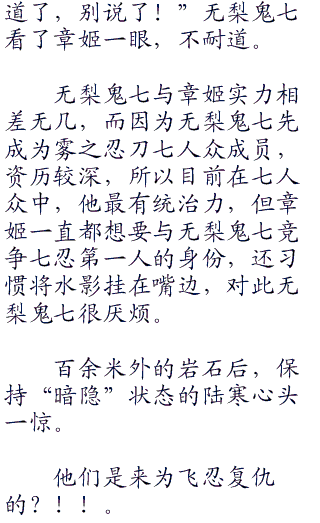 道了，别说了！”无梨鬼七
看了章姬一眼，不耐道。
无梨鬼七与章姬实力相
差无几，而因为无梨鬼七先
成为雾之忍刀七人众成员，
资历较深，所以目前在七人
众中，他最有统治力，但章
姬一直都想要与无梨鬼七竞
争七忍第一人的身份，还习
惯将水影挂在嘴边，对此无
梨鬼七很厌烦。
百余米外的岩石后，保
持“暗隐”状态的陆寒心头
一惊。
他们是来为飞忍复仇
的？！！。